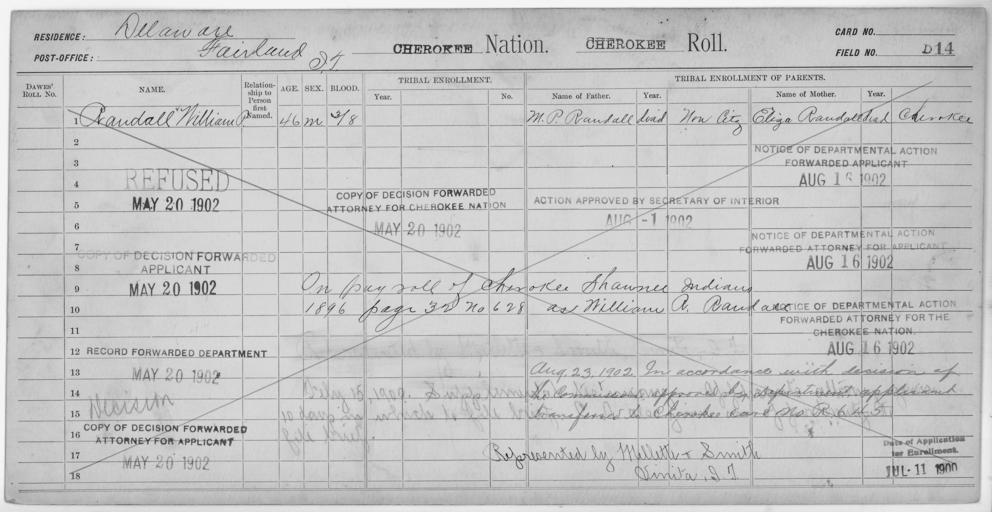 RESIDENCE: Delaware
POST-OFFICE: Fairland I.T.
CHEROKEE Nation. CHEROKEE Roll.
CARD NO.
FIELD NO. D14
DAWES' ROLL NO. NAME. Relationship to Person first Named. AGE. SEX. BLOOD. TRIBAL ENROLLMENT. Year. No. TRIBAL ENROLLMENT OF PARENTS. Name of Father. Year. Name of Mother. Year.
1 Randall William P. 46 m 3/8 M. P. Randall died Non Citz Eliza Randall died Cherokee
2
NOTICE OF DEPARTMENTAL ACTION
3
FORWARDED APPLICANT
4 REFUSED
AUG 16 1902
5 MAY 20 1902
COPY OF DECISION FORWARDED
ATTORNEY FOR CHEROKEE NATION
MAY 20 1902
ACTION APPROVED BY SECRETARY OF INTERIOR
AUG -1 1902
6
7
COPY OF DECISION FORWARDED
APPLICANT
8
NOTICE OF DEPARTMENTAL ACTION
FORWARDED ATTORNEY FOR APPLICANT
AUG 16 1902
9 MAY 20 1902
On pay roll of Cherokee Shawnee Indians
10 1896 page 32 No 628 as William A. Randall
NOTICE OF DEPARTMENTAL ACTION
FORWARDED ATTORNEY FOR THE
CHEROKEE NATION.
AUG 16 1902
11
12 RECORD FORWARDED DEPARTMENT
13 MAY 20 1902
Aug. 23, 1902. In accordance with decision of
14 Commission approved by Department, applicant
15 Decision
transferred to Cherokee card No R 645
16 COPY OF DECISION FORWARDED
ATTORNEY FOR APPLICANT
17 MAY 20 1902
Represented by Mellette & Smith
18 Vinita, I.T.
Date of Application
for Enrollment.
JUL 11 1900